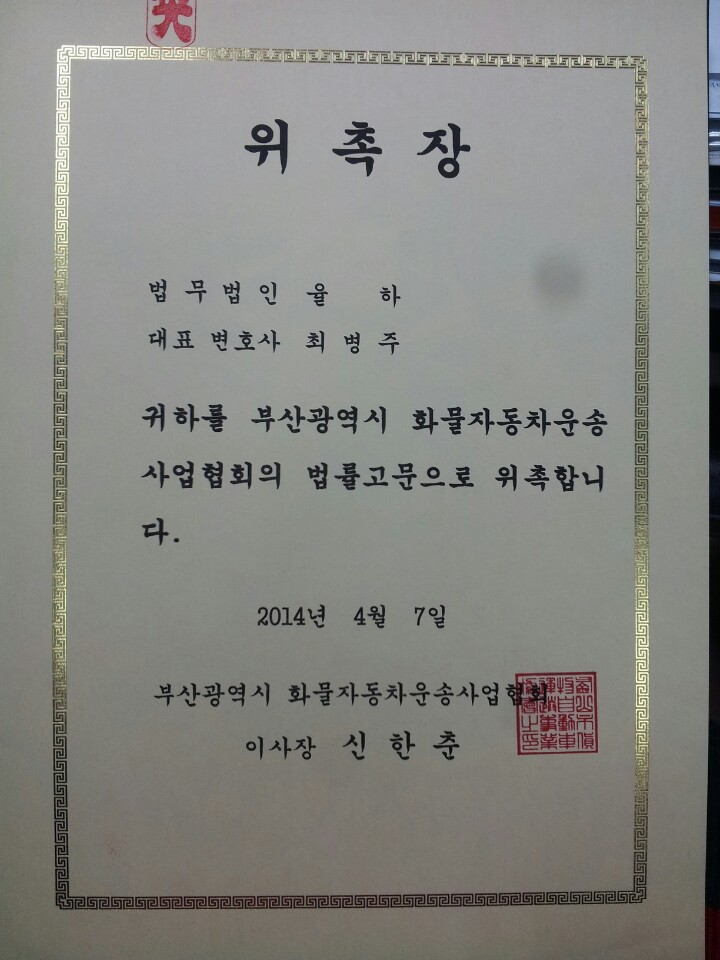 위 촉 장
법 무 법 인 율 하
대표 변호사 최 병 주
귀하를 부산광역시 화물자동차운송
사업협회의 법률고문으로 위촉합니
다.
2014년 4월 7일
부산광역시 화물자동차운송사업협회
이사장 신 한 춘